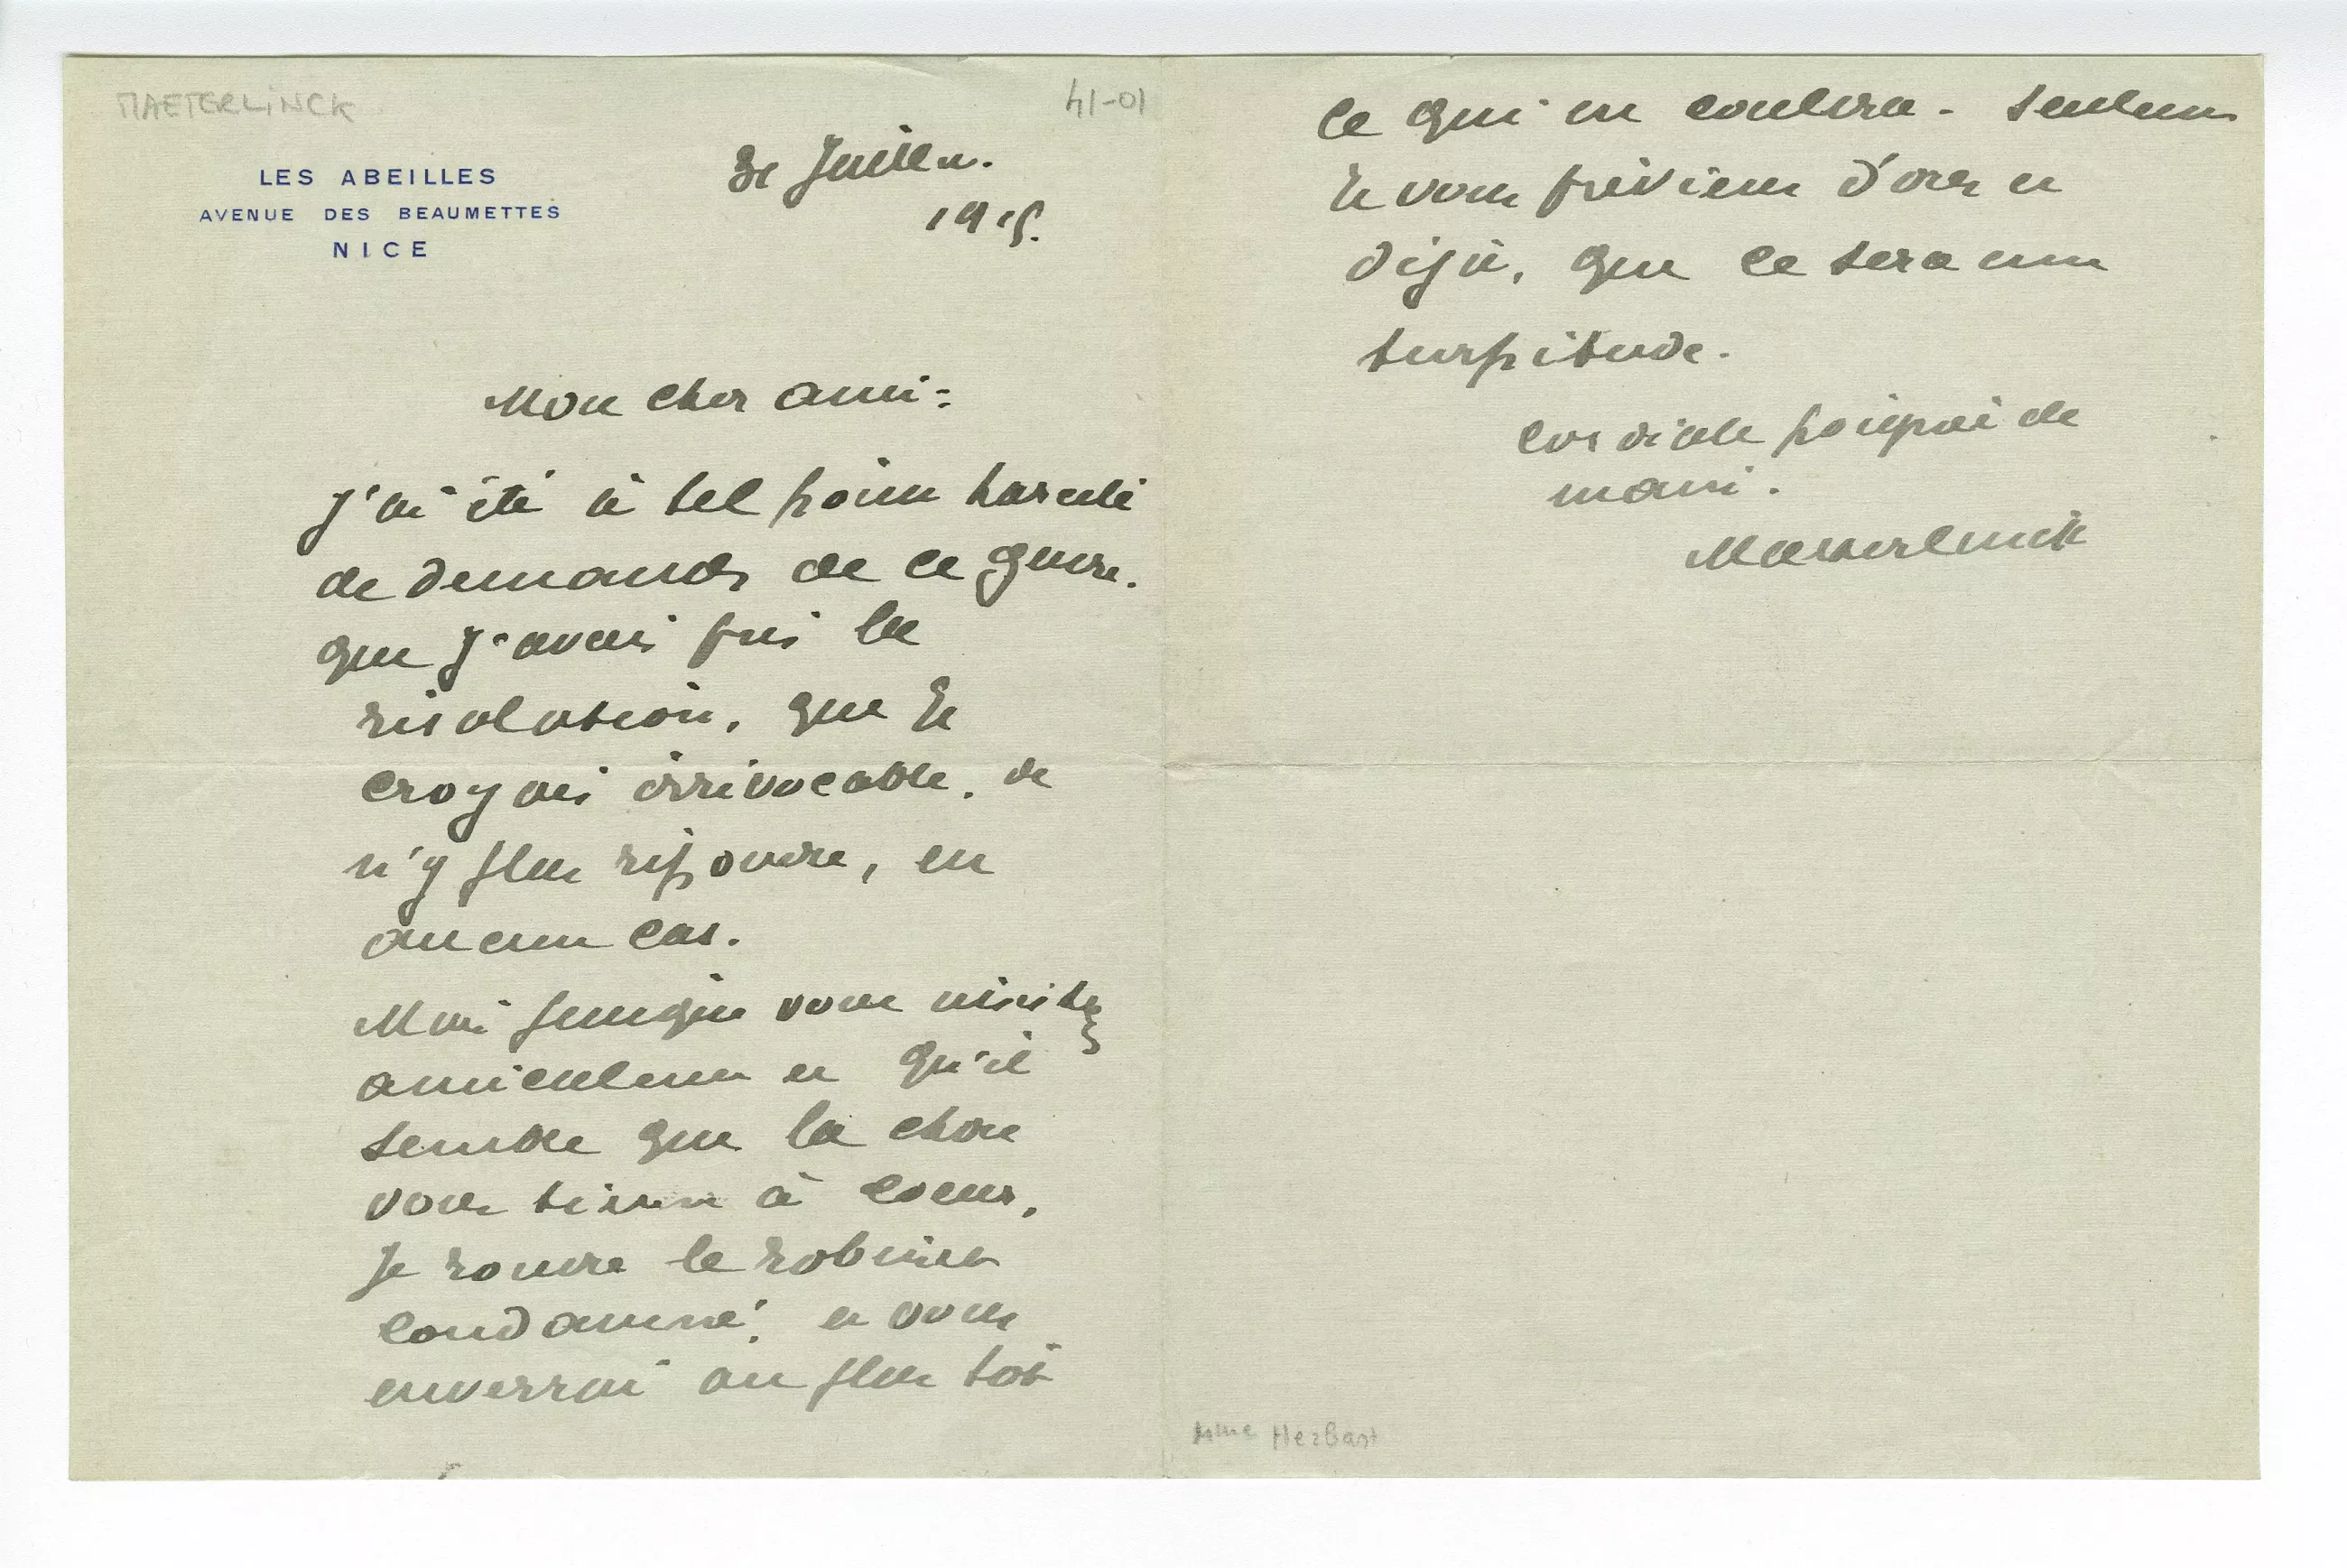 MAETERLINCK
41-01
LES ABEILLES
AVENUE DES BEAUMETTES
NICE
Juillet.
1915.
Mon cher ami:
J'ai été à tel point harcelé
de demandes de ce genre,
que j'avais pris la
résolution, que je
croyais irrévocable, de
n'y plus répondre, en
aucun cas.
Mais puisque vous insistez
amicalement et qu'il
semble que la chose
vous tienne à coeur,
je rouvre le robinet
condamné, et vous
enverrai au plus tôt
ce qui en coulera. Seulement
je vous préviens d'ores et
déjà, que ce sera une
turpitude.
Cordiale poignée de
main.
Maeterlinck
Mme Herbart